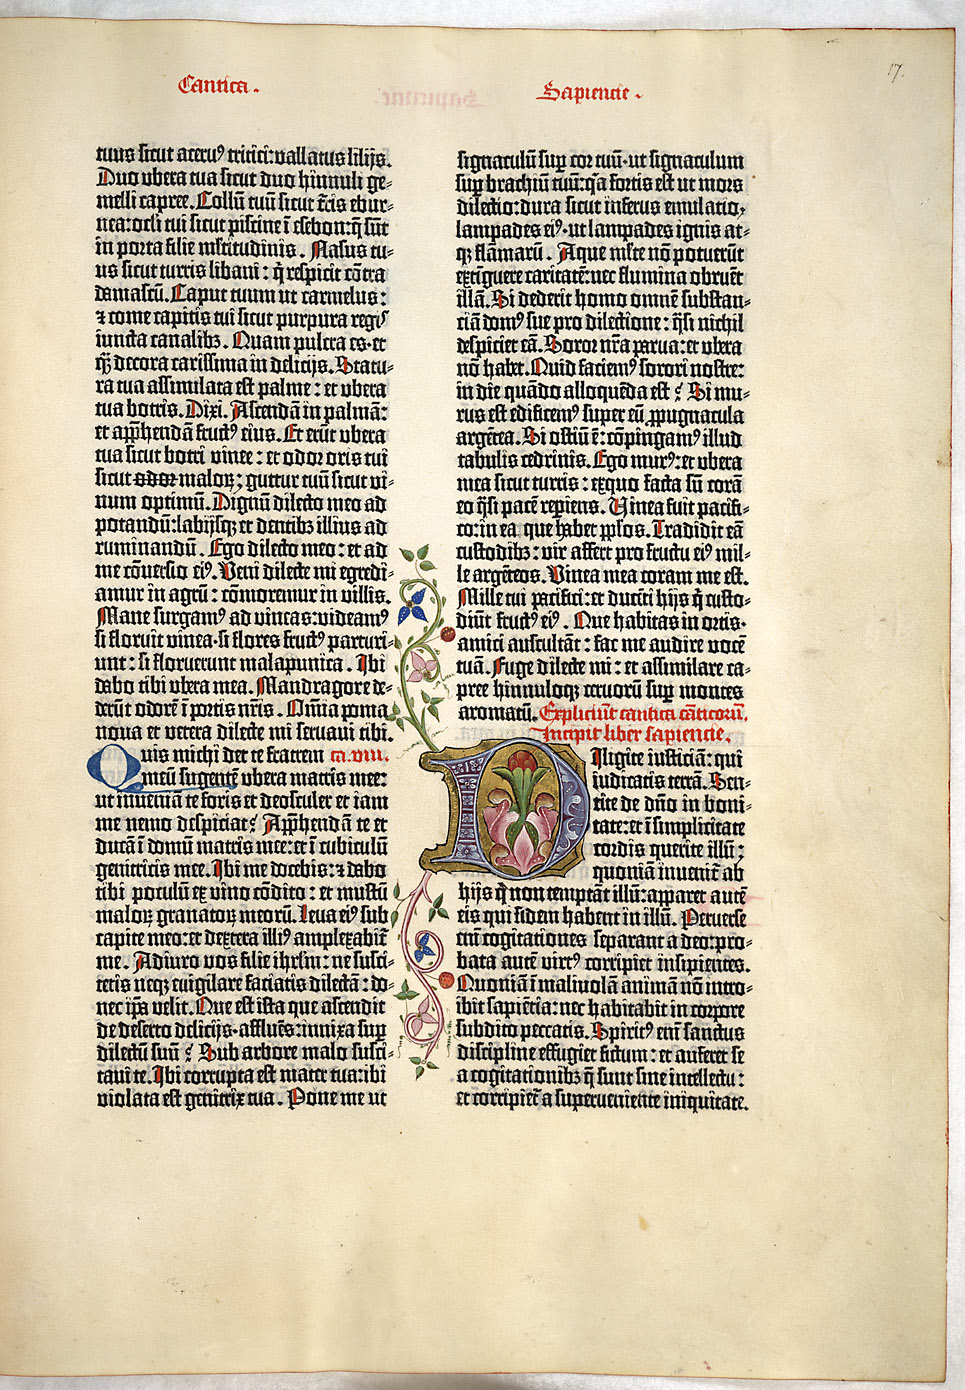 17.
Cantica.
Sapiencie.
tuus sicut aceruꝰ tritici: vallatus lilijs.
Duo vbera tua sicut duo hinnuli ge-
melli capree. Collū tuū sicut t̄ris ebur-
nea: oc̄li tui sicut piscine ī esebon: q̄ sūt
in porta filie ml̄titudinis. Nasus tu-
us sicut turris libani: q̄ respicit cōtra
damascū. Caput tuum ut carmelus:
⁊ come capitis tui sicut purpura regis
iuncta canalibꝫ. Quam pulcra es·et
q̄ꝫ decora carissima in delicijs. Statu-
ra tua assimilata est palme: et vbera
tua botris. Dixi. Ascendā in palmā:
et app̄hendā fructꝰ eius. Et erūt vbera
tua sicut botri vinee: et odor oris tui
sicut odor maloꝝ: guttur tuū sicut vi-
num optimū. Dignū dilecto meo ad
potandū: labijsqꝫ et dentibꝫ illius ad
ruminandū. Ego dilecto meo: et ad
me cōuersio eiꝰ. Veni dilecte mi egredi-
amur in agrū: cōmoremur in villis.
Mane surgamꝰ ad vineas: videamꝰ
si floruit vinea·si flores fructꝰ parturi-
unt: si floruerunt malapunica. Ibi
dabo tibi vbera mea. Mandragore de-
derūt odorē ī portis nr̄is. Om̄ia poma
noua et vetera dilecte mi seruaui tibi.
Quis michi det te fratrem ca. viii.
meū sugentē vbera matris mee:
ut inueniā te foris et deosculer et iam
me nemo despiciat? App̄hendā te et
ducā ī domū matris mee: et ī cubiculū
genitricis mee. Ibi me docebis: ⁊ dabo
tibi poculū ex vino cōdito: et mustū
maloꝝ granatoꝝ meorū. Leua eiꝰ sub
capite meo: et dextera illiꝰ amplexabit̄
me. Adiuro vos filie ihrl̄m: ne susci-
tetis neqꝫ euigilare faciatis dilectā: do-
nec ip̄a velit. Que est ista que ascendit
de deserto delicijs·affluēs: innixa sup
dilectū suū? Sub arbore malo susci-
taui te. Ibi corrupta est mater tua: ibi
violata est genitrix tua. Pone me ut
signaculū sup cor tuū·ut signaculum
sup brachiū tuū: q̄a fortis est ut mors
dilectio: dura sicut inferus emulatio,
lampades eiꝰ·ut lampades ignis at-
qꝫ flāmarū. Aque ml̄te nō potuerūt
extīguere caritatē: nec flumina obruēt
illā. Si dederit homo omnē substan-
ciā domꝰ sue pro dilectione: q̄si nichil
despiciet eā. Soror nr̄a parua: et vbera
nō habet. Quid faciemꝰ sorori nostre:
in die quādo alloquēda est? Si mu-
rus est edificemꝰ super eū ꝓpugnacula
argētea. Si ostiū ē: cōpingamꝰ illud
tabulis cedrinis. Ego murꝰ: et vbera
mea sicut turris: exquo facta sū corā
eo q̄si pacē reperiens. Vinea fuit pacifi-
co: in ea que habet pp̄los. Tradidit eā
custodibꝫ: vir affert pro fructu eiꝰ mil-
le argēteos. Vinea mea coram me est.
Mille tui pacifici: et ducēti hijs q̄ custo-
diūt fructꝰ eiꝰ. Que habitas in ortis·
amici auscultāt: fac me audire vocē
tuā. Fuge dilecte mi: et assimilare ca-
pree hinnuloqꝫ ceruorū sup montes
aromatū. Expliciūt cantica cāticorū.
Incipit liber sapiencie.
Diligite iusticiā: qui
iudicatis terrā. Sen-
tite de dn̄o in boni-
tate: et ī simplicitate
cordis querite illū:
quoniā inuenit̄ ab
hijs q̄ non temptāt illū: apparet autē
eis qui fidem habent in illū. Peruerse
eni cogitationes separant a deo: pro-
bata autē virtꝰ corripiet insipientes.
Quoniā ī maliuolā animā nō intro-
ibit sapiētia: nec habitabit in corpore
subdito peccatis. Spiritꝰ enī sanctus
discipline effugiet fictum: et auferet se
a cogitationibꝫ q̄ sunt sine intellectu:
et corripiet̄ a superueniente iniquitate.